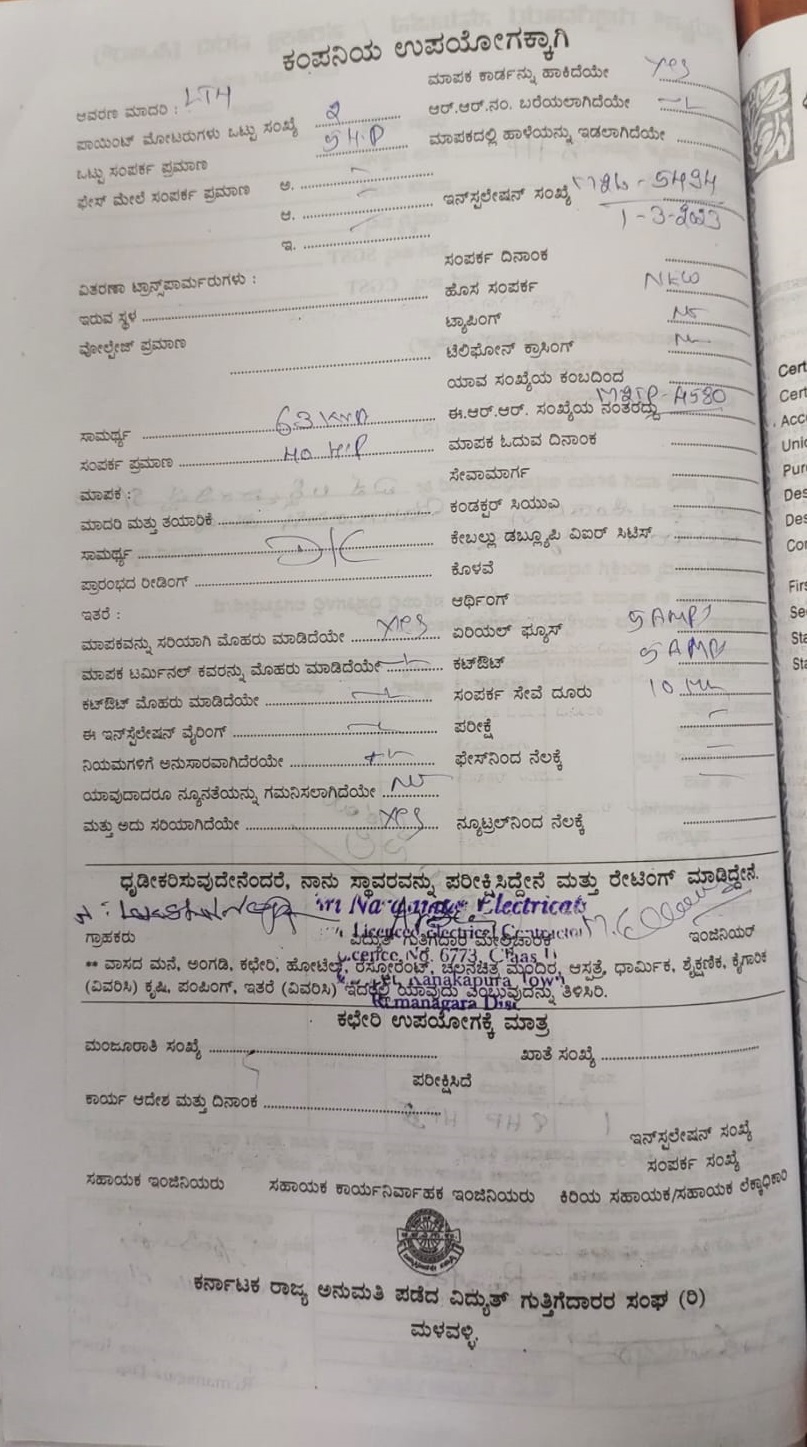 ಕಂಪನಿಯ ಉಪಯೋಗಕ್ಕಾಗಿ
ಆವರಣ ಮಾದರಿ : LT4
ಪಾಯಿಂಟ್ ಮೋಟರುಗಳು ಒಟ್ಟು ಸಂಖ್ಯೆ 2
ಒಟ್ಟು ಸಂಪರ್ಕ ಪ್ರಮಾಣ 5 H.P
ಫೇಸ್ ಮೇಲೆ ಸಂಪರ್ಕ ಪ್ರಮಾಣ ಅ.
ಆ.
ಇ.
ವಿತರಣಾ ಟ್ರಾನ್ಸ್‌ಪಾರ್ಮರುಗಳು :
ಇರುವ ಸ್ಥಳ
ವೋಲ್ಟೇಜ್ ಪ್ರಮಾಣ
ಸಾಮರ್ಥ್ಯ 63 KVA
ಸಂಪರ್ಕ ಪ್ರಮಾಣ 40 H.P
ಮಾಪಕ :
ಮಾದರಿ ಮತ್ತು ತಯಾರಿಕೆ
ಸಾಮರ್ಥ್ಯ D/C
ಪ್ರಾರಂಭದ ರೀಡಿಂಗ್
ಇತರೆ :
ಮಾಪಕವನ್ನು ಸರಿಯಾಗಿ ಮೊಹರು ಮಾಡಿದೆಯೇ YES
ಮಾಪಕ ಟರ್ಮಿನಲ್ ಕವರನ್ನು ಮೊಹರು ಮಾಡಿದೆಯೇ
ಕಟ್‌ಔಟ್ ಮೊಹರು ಮಾಡಿದೆಯೇ
ಈ ಇನ್‌ಸ್ಟಲೇಷನ್ ವೈರಿಂಗ್
ನಿಯಮಗಳಿಗೆ ಅನುಸಾರವಾಗಿದೆರಯೇ
ಯಾವುದಾದರೂ ನ್ಯೂನತೆಯನ್ನು ಗಮನಿಸಲಾಗಿದೆಯೇ No
ಮತ್ತು ಅದು ಸರಿಯಾಗಿದೆಯೇ YES
ಮಾಪಕ ಕಾರ್ಡನ್ನು ಹಾಕಿದೆಯೇ YES
ಆರ್.ಆರ್.ನಂ. ಬರೆಯಲಾಗಿದೆಯೇ
ಮಾಪಕದಲ್ಲಿ ಹಾಳೆಯನ್ನು ಇಡಲಾಗಿದೆಯೇ
ಇನ್‌ಸ್ಪಲೇಷನ್ ಸಂಖ್ಯೆ 5494
1-3-2023
ಸಂಪರ್ಕ ದಿನಾಂಕ
ಹೊಸ ಸಂಪರ್ಕ NEW
ಟ್ಯಾಪಿಂಗ್ No
ಟೆಲಿಫೋನ್ ಕ್ರಾಸಿಂಗ್
ಯಾವ ಸಂಖ್ಯೆಯ ಕಂಬದಿಂದ
ಈ.ಆರ್.ಆರ್. ಸಂಖ್ಯೆಯ ನಂತರದ್ದು 4580
ಮಾಪಕ ಓದುವ ದಿನಾಂಕ
ಸೇವಾಮಾರ್ಗ
ಕಂಡಕ್ಟರ್ ಸಿಯುಎ
ಕೇಬಲ್ಲು ಡಬ್ಲ್ಯೂಪಿ ವಿಐರ್ ಸಿಟಿಸ್
ಕೊಳವೆ
ಆರ್ಥಿಂಗ್
ಏರಿಯಲ್ ಫ್ಯೂಸ್ 5 AMPS
ಕಟ್‌ಔಟ್ 5 AMPS
ಸಂಪರ್ಕ ಸೇವೆ ದೂರು 10
ಪರೀಕ್ಷೆ
ಫೇಸ್‌ನಿಂದ ನೆಲಕ್ಕೆ
ನ್ಯೂಟ್ರಲ್‌ನಿಂದ ನೆಲಕ್ಕೆ
ಧೃಡೀಕರಿಸುವುದೇನೆಂದರೆ, ನಾನು ಸ್ಥಾವರವನ್ನು ಪರೀಕ್ಷಿಸಿದ್ದೇನೆ ಮತ್ತು ರೇಟಿಂಗ್ ಮಾಡಿದ್ದೇನೆ.
Electricals
Licenced Electrical Contractor
ಗ್ರಾಹಕರು ವಿದ್ಯುತ್ ಗುತ್ತಿಗೆದಾರ ಮೇಲಿಚಾರಕ ಇಂಜಿನಿಯರ್
No. 6773, Class I
** ವಾಸದ ಮನೆ, ಅಂಗಡಿ, ಕಛೇರಿ, ಹೋಟೆಲ್, ರೆಸ್ಟೋರೆಂಟ್, ಚಲನಚಿತ್ರ ಮಂದಿರ, ಆಸ್ಪತ್ರೆ, ಧಾರ್ಮಿಕ, ಶೈಕ್ಷಣಿಕ, ಕೈಗಾರಿಕ
Kanakapura Town
(ವಿವರಿಸಿ) ಕೃಷಿ, ಪಂಪಿಂಗ್, ಇತರೆ (ವಿವರಿಸಿ) ಇದರಲ್ಲಿ ಯಾವುದು ಎಂಬುವುದನ್ನು ತಿಳಿಸಿರಿ.
Ramanagara Dist
ಕಛೇರಿ ಉಪಯೋಗಕ್ಕೆ ಮಾತ್ರ
ಮಂಜೂರಾತಿ ಸಂಖ್ಯೆ ಖಾತೆ ಸಂಖ್ಯೆ
ಪರೀಕ್ಷಿಸಿದೆ
ಕಾರ್ಯ ಆದೇಶ ಮತ್ತು ದಿನಾಂಕ
ಇನ್‌ಸ್ಪಲೇಷನ್ ಸಂಖ್ಯೆ
ಸಂಪರ್ಕ ಸಂಖ್ಯೆ
ಸಹಾಯಕ ಇಂಜಿನಿಯರು ಸಹಾಯಕ ಕಾರ್ಯನಿರ್ವಾಹಕ ಇಂಜಿನಿಯರು ಕಿರಿಯ ಸಹಾಯಕ/ಸಹಾಯಕ ಲೆಕ್ಕಾಧಿಕಾರಿ
ಕರ್ನಾಟಕ ರಾಜ್ಯ ಅನುಮತಿ ಪಡೆದ ವಿದ್ಯುತ್ ಗುತ್ತಿಗೆದಾರರ ಸಂಘ (ರಿ)
ಮಳವಳ್ಳಿ.